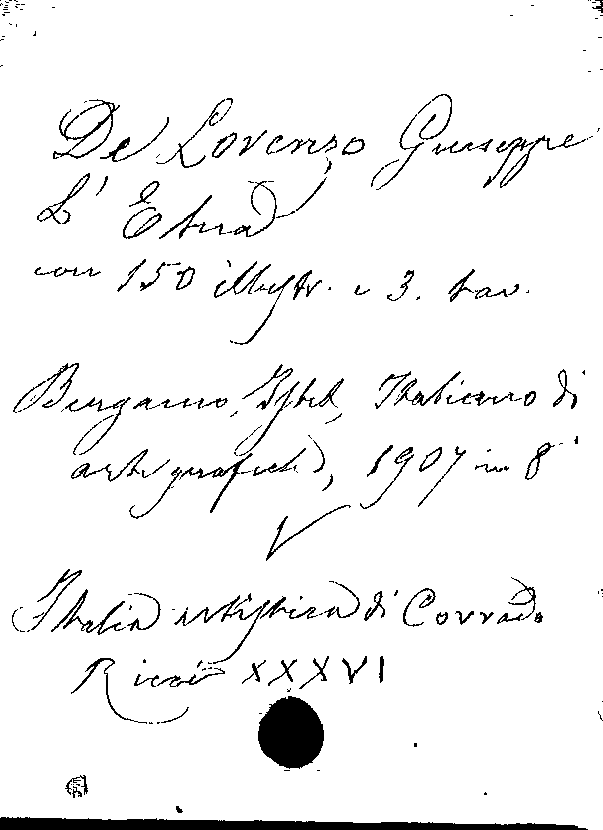 De Lorenzo Giuseppe
L' Etna
con 150 illustr. e 3. tav.
Bergamo, Istit. Italiano di
arti grafiche, 1907 in 8°
Italia artistica di Corrado
Ricci XXXVI